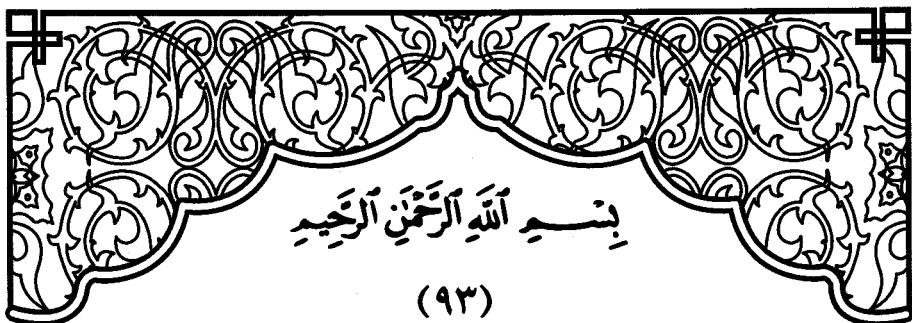 بِسْمِ ٱللَّهِ ٱلرَّحْمَٰنِ ٱلرَّحِيمِ
(٩٣)